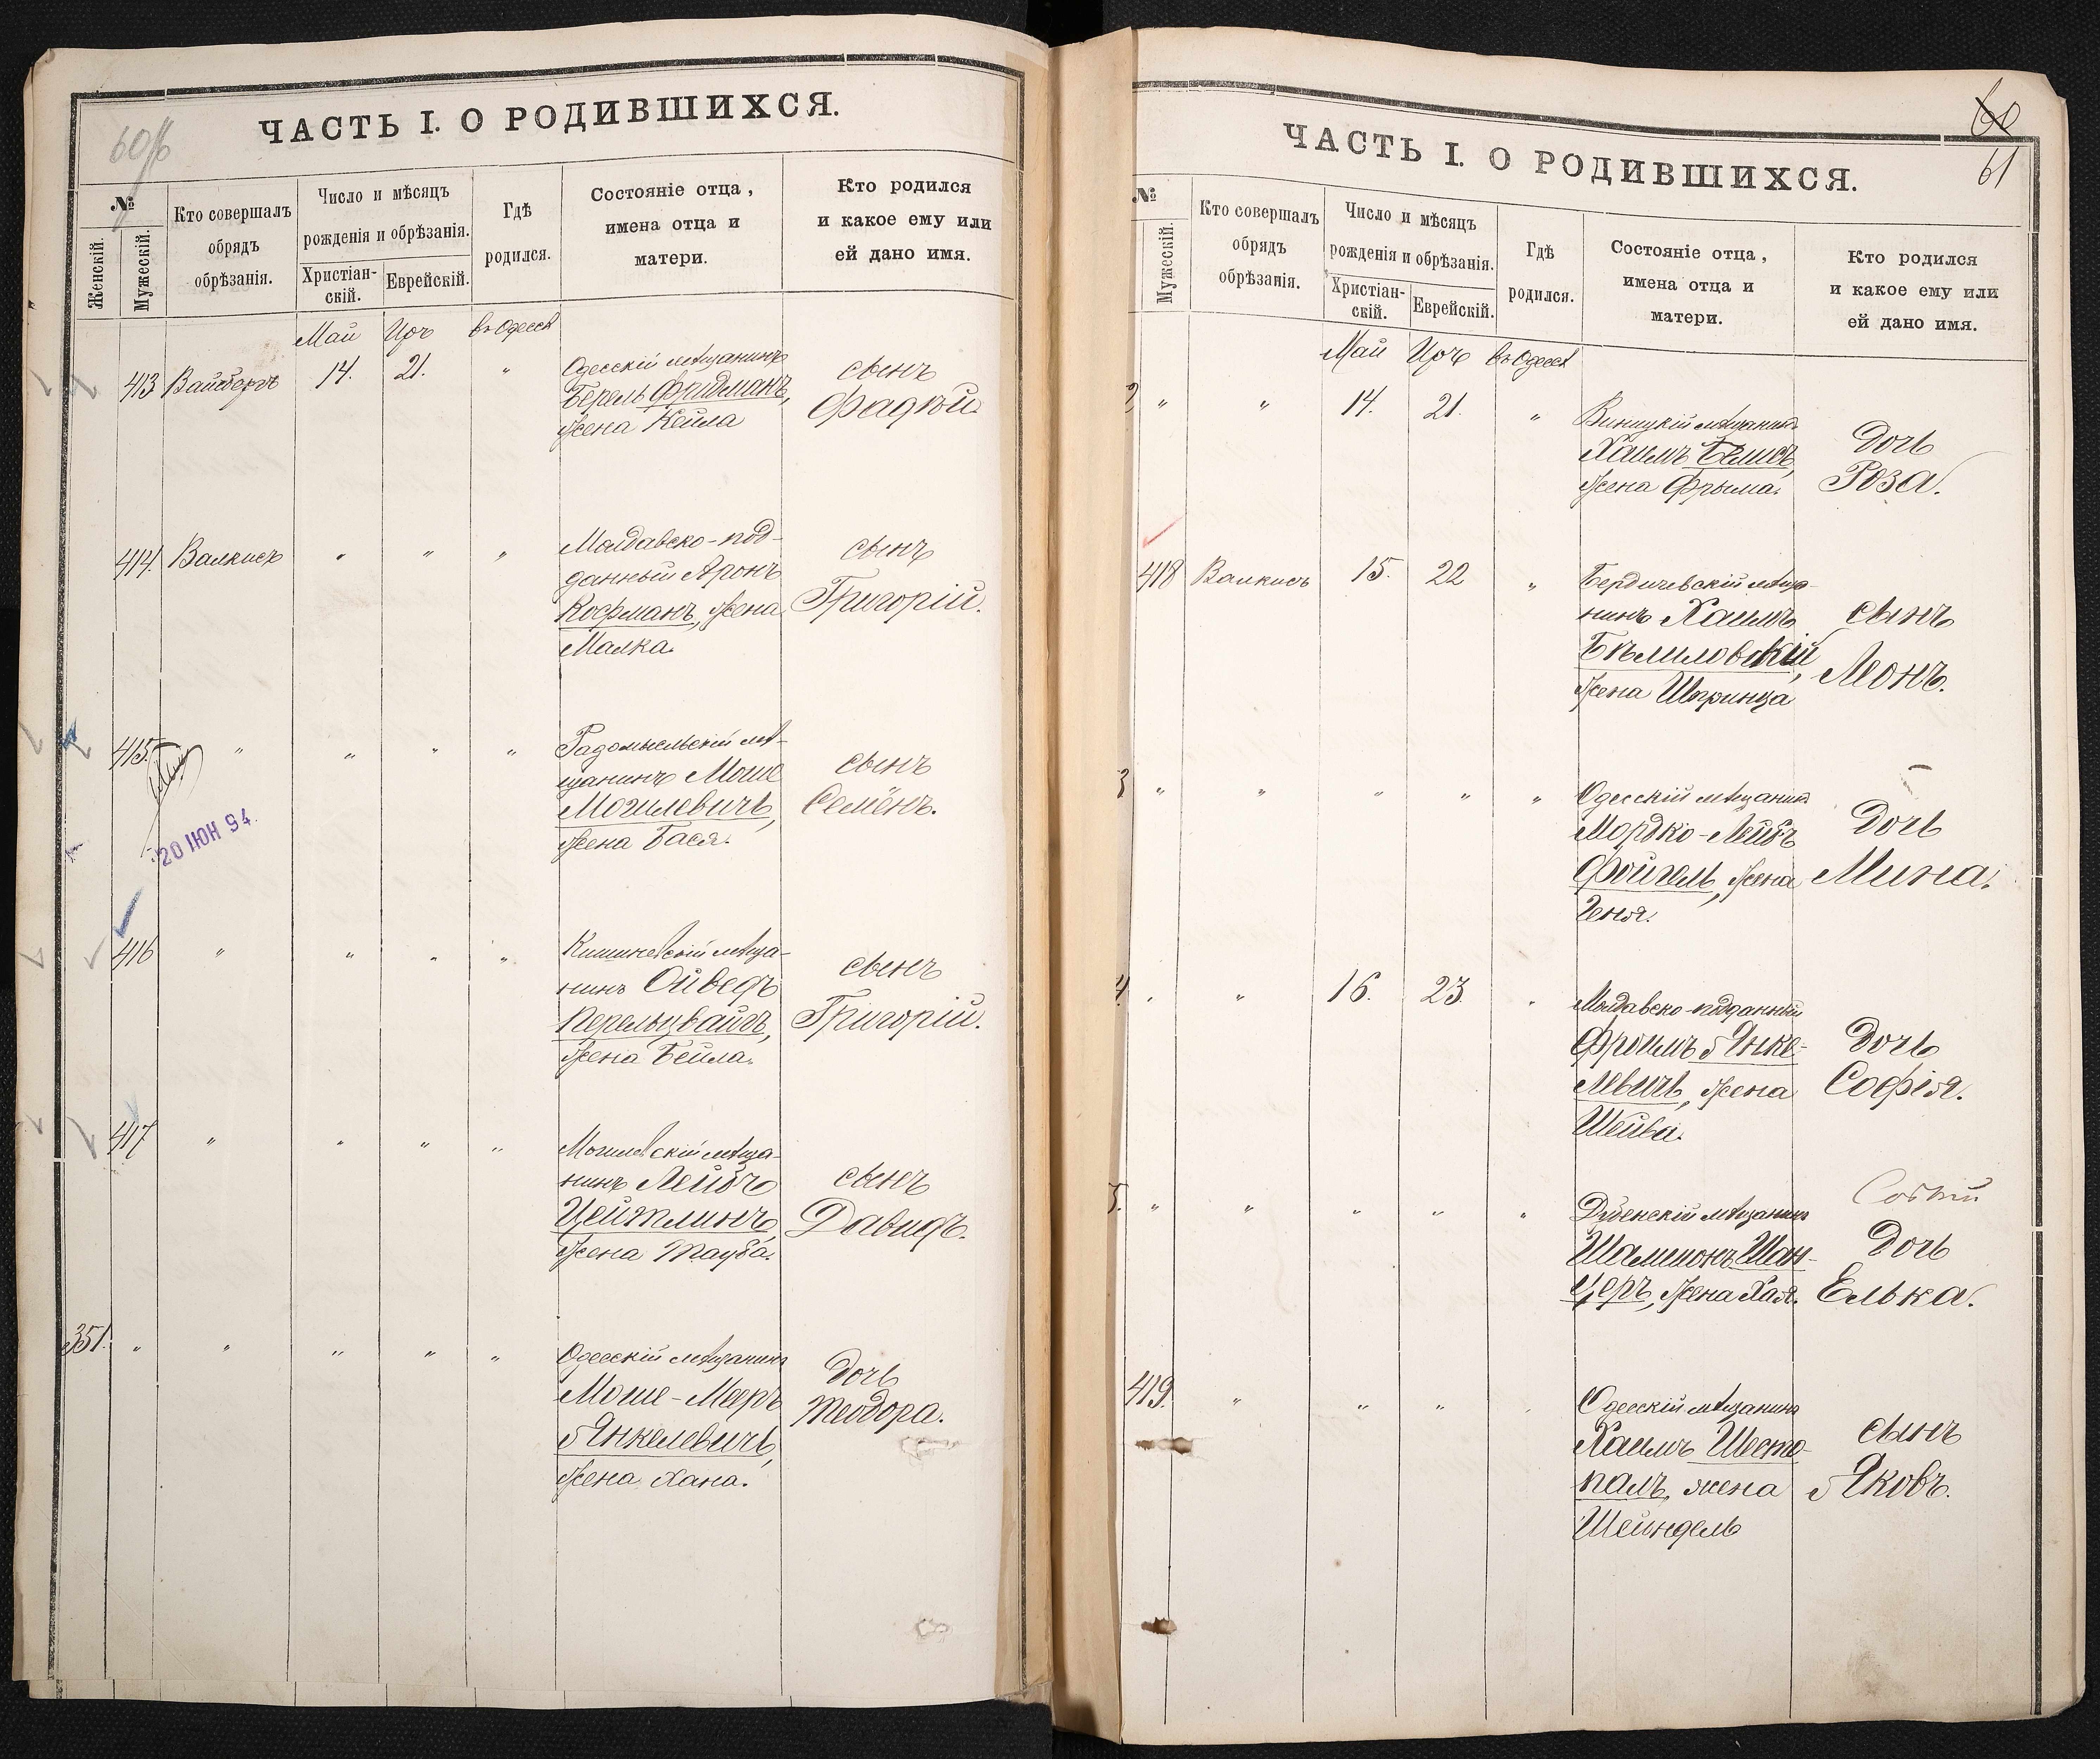 60
ЧАСТЬ I. О РОДИВШИХСЯ.
№
Женскій.
Мужескій.
Кто совершалъ
обрядъ
обрѣзанія.
Число и мѣсяцъ
рожденія и обрѣзанія.
Христіан-
скій.
Еврейскій.
Гдѣ
родился.
Состояніе отца,
имена отца и
матери.
Кто родился
и какое ему или
ей дано имя.
Май Иръ въ Одессѣ
413 Вайсбергъ 14. 21. „
Одесскій мѣщанинъ
Берель Фридманъ,
жена Кейла
сынъ
Фадѣй.
414. Валкисъ „ „ „
Молдавско-под-
данный Аронъ
Кофманъ, жена
Малка.
сынъ
Григорій.
415. „ „ „ „
20 ІЮН 94.
Радомысльскій мѣ-
щанинъ Моше
Могилевичъ,
жена Бася.
сынъ
Семёнъ.
416 „ „ „ „
Кишиневскій мѣща-
нинъ Ойведъ
Перельцвайгъ,
жена Бейла.
сынъ
Григорій.
417 „ „ „ „
Могилевскій мѣща-
нинъ Лейбъ
Цейтлинъ,
жена Тауба.
сынъ
Давидъ.
351. „ „ „ „ „
Одесскій мѣщанинъ
Моше-Мееръ
Янкелевичъ,
жена Хана.
дочь
Теодора.
60
61
ЧАСТЬ I. О РОДИВШИХСЯ.
№
Мужескій.
Кто совершалъ
обрядъ
обрѣзанія.
Число и мѣсяцъ
рожденія и обрѣзанія.
Христіан-
скій.
Еврейскій.
Гдѣ
родился.
Состояніе отца,
имена отца и
матери.
Кто родился
и какое ему или
ей дано имя.
Май Иръ въ Одессѣ
2 „ „ 14. 21. „
Виницкій мѣщанинъ
Хаимъ
жена Фрыма.
Дочь
Роза.
418 Валкисъ 15. 22 „
Бердичевскій мѣща-
нинъ Хаимъ
Бѣлиловскій,
жена Шпринца
сынъ
Леонъ.
3 „ „ „ „ „
Одесскій мѣщанинъ
Мордко-Лейбъ
Фойгель, жена
Геня.
Дочь
Мина.
4. „ „ 16. 23. „
Молдавско-подданный
Фроимъ Янке-
левичъ, жена
Шейва.
Дочь
Софія.
5. „ „ „ „ „
Дубенскій мѣщанинъ
Шамшонъ Шан-
церъ, жена Хая.
Дочь
Елька.
419. „ „ „
Одесскій мѣщанинъ
Хаимъ Шесто-
палъ, жена
Шейндель
сынъ
Яковъ.